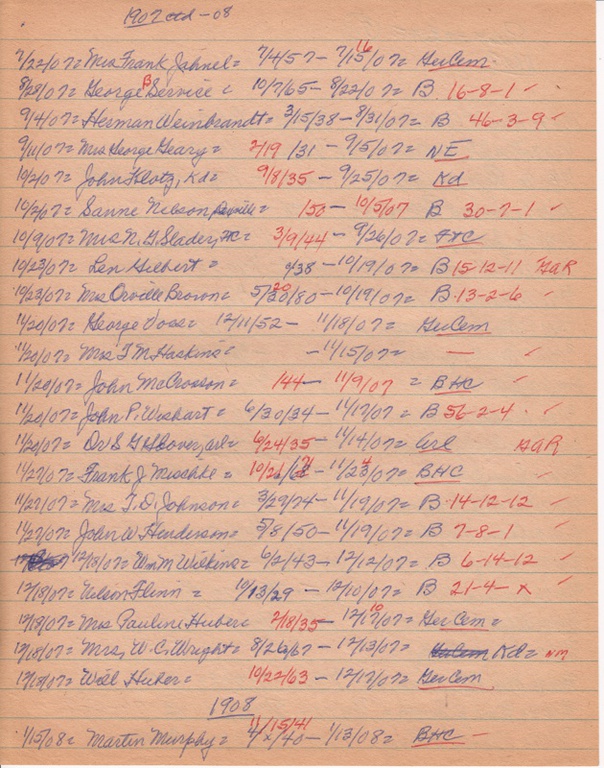 1907 ctd - 08
7/22/07 = Mrs Frank Jahnel = 7/4/57 - 7/15/07 = GerCem 16
8/28/07 = George B Service = 10/7/65 - 8/22/07 = B 16-8-1 ✓
9/4/07 = Herman Weinbrandt = 3/15/38 - 8/31/07 = B 46-3-9 ✓
9/11/07 = Mrs George Geary = 2/19/31 - 9/5/07 = NE
10/2/07 = John Klotz, Kd = 9/8/35 - 9/25/07 = Kd
10/2/07 = Sanne Nelson = 150 - 10/5/07 B 30-7-1 ✓
10/9/07 = Mrs N. G. Slader, = 3/9/44 - 9/26/07 = FXC
10/23/07 = Len Hilbert = /38 - 10/19/07 = B 15-12-11 GaR
10/23/07 = Mrs Orville Brown = 5/20/80 - 10/19/07 = B 13-2-6 ✓
11/20/07 = George Voss = 12/11/52 - 11/18/07 = GerCem
11/20/07 = Mrs T M Haskins = - 11/15/07 = — ✓
11/20/07 = John McCrosson = 144 - 11/9/07 = BHC ✓
11/20/07 = John P. Wishart = 6/30/34 - 11/17/07 = B 56-2-4 ✓
11/20/07 = Dr S G Hoover, arl = 6/24/35 - 11/14/07 = arl GaR
11/27/07 = Frank J Mischke = 10/21/68 - 11/23/07 = BHC ✓ 4
11/27/07 = Mrs T. D. Johnson = 3/29/74 - 11/19/07 = B 14-12-12 ✓
11/27/07 = John W Henderson = 5/8/50 - 11/19/07 = B 7-8-1 ✓
12/18/07 = Wm M Wilkins = 6/2/43 - 12/12/07 = B 6-14-12 ✓
12/18/07 = Nelson Flinn = 10/13/29 - 12/10/07 = B 21-4-x ✓
12/18/07 = Mrs Pauline Huber = 2/18/35 - 12/10/07 = GerCem =
12/18/07 = Mrs, W. C. Wright = 8/26/67 - 12/13/07 = GerCem Kd = NM
12/18/07 = Will Huber = 10/22/63 - 12/17/07 = GerCem
1908
11/15/41
1/15/08 = Martin Murphy = /x/40 - 1/13/08 = BHC -